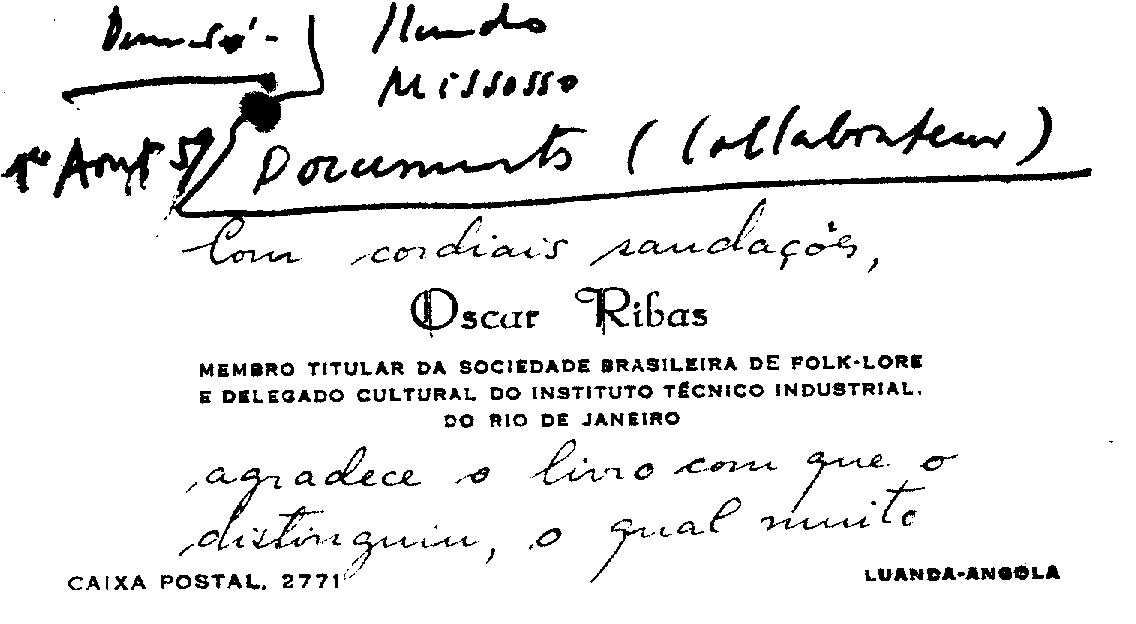 Ilundo
Missosso
1er Août
Documents (Collaborateur)
Com cordiais saudações,
Oscar Ribas
MEMBRO TITULAR DA SOCIEDADE BRASILEIRA DE FOLK-LORE
E DELEGADO CULTURAL DO INSTITUTO TÉCNICO INDUSTRIAL.
DO RIO DE JANEIRO
agradece o livro com que o
distinguiu, o qual muito
CAIXA POSTAL, 2771
LUANDA-ANGOLA